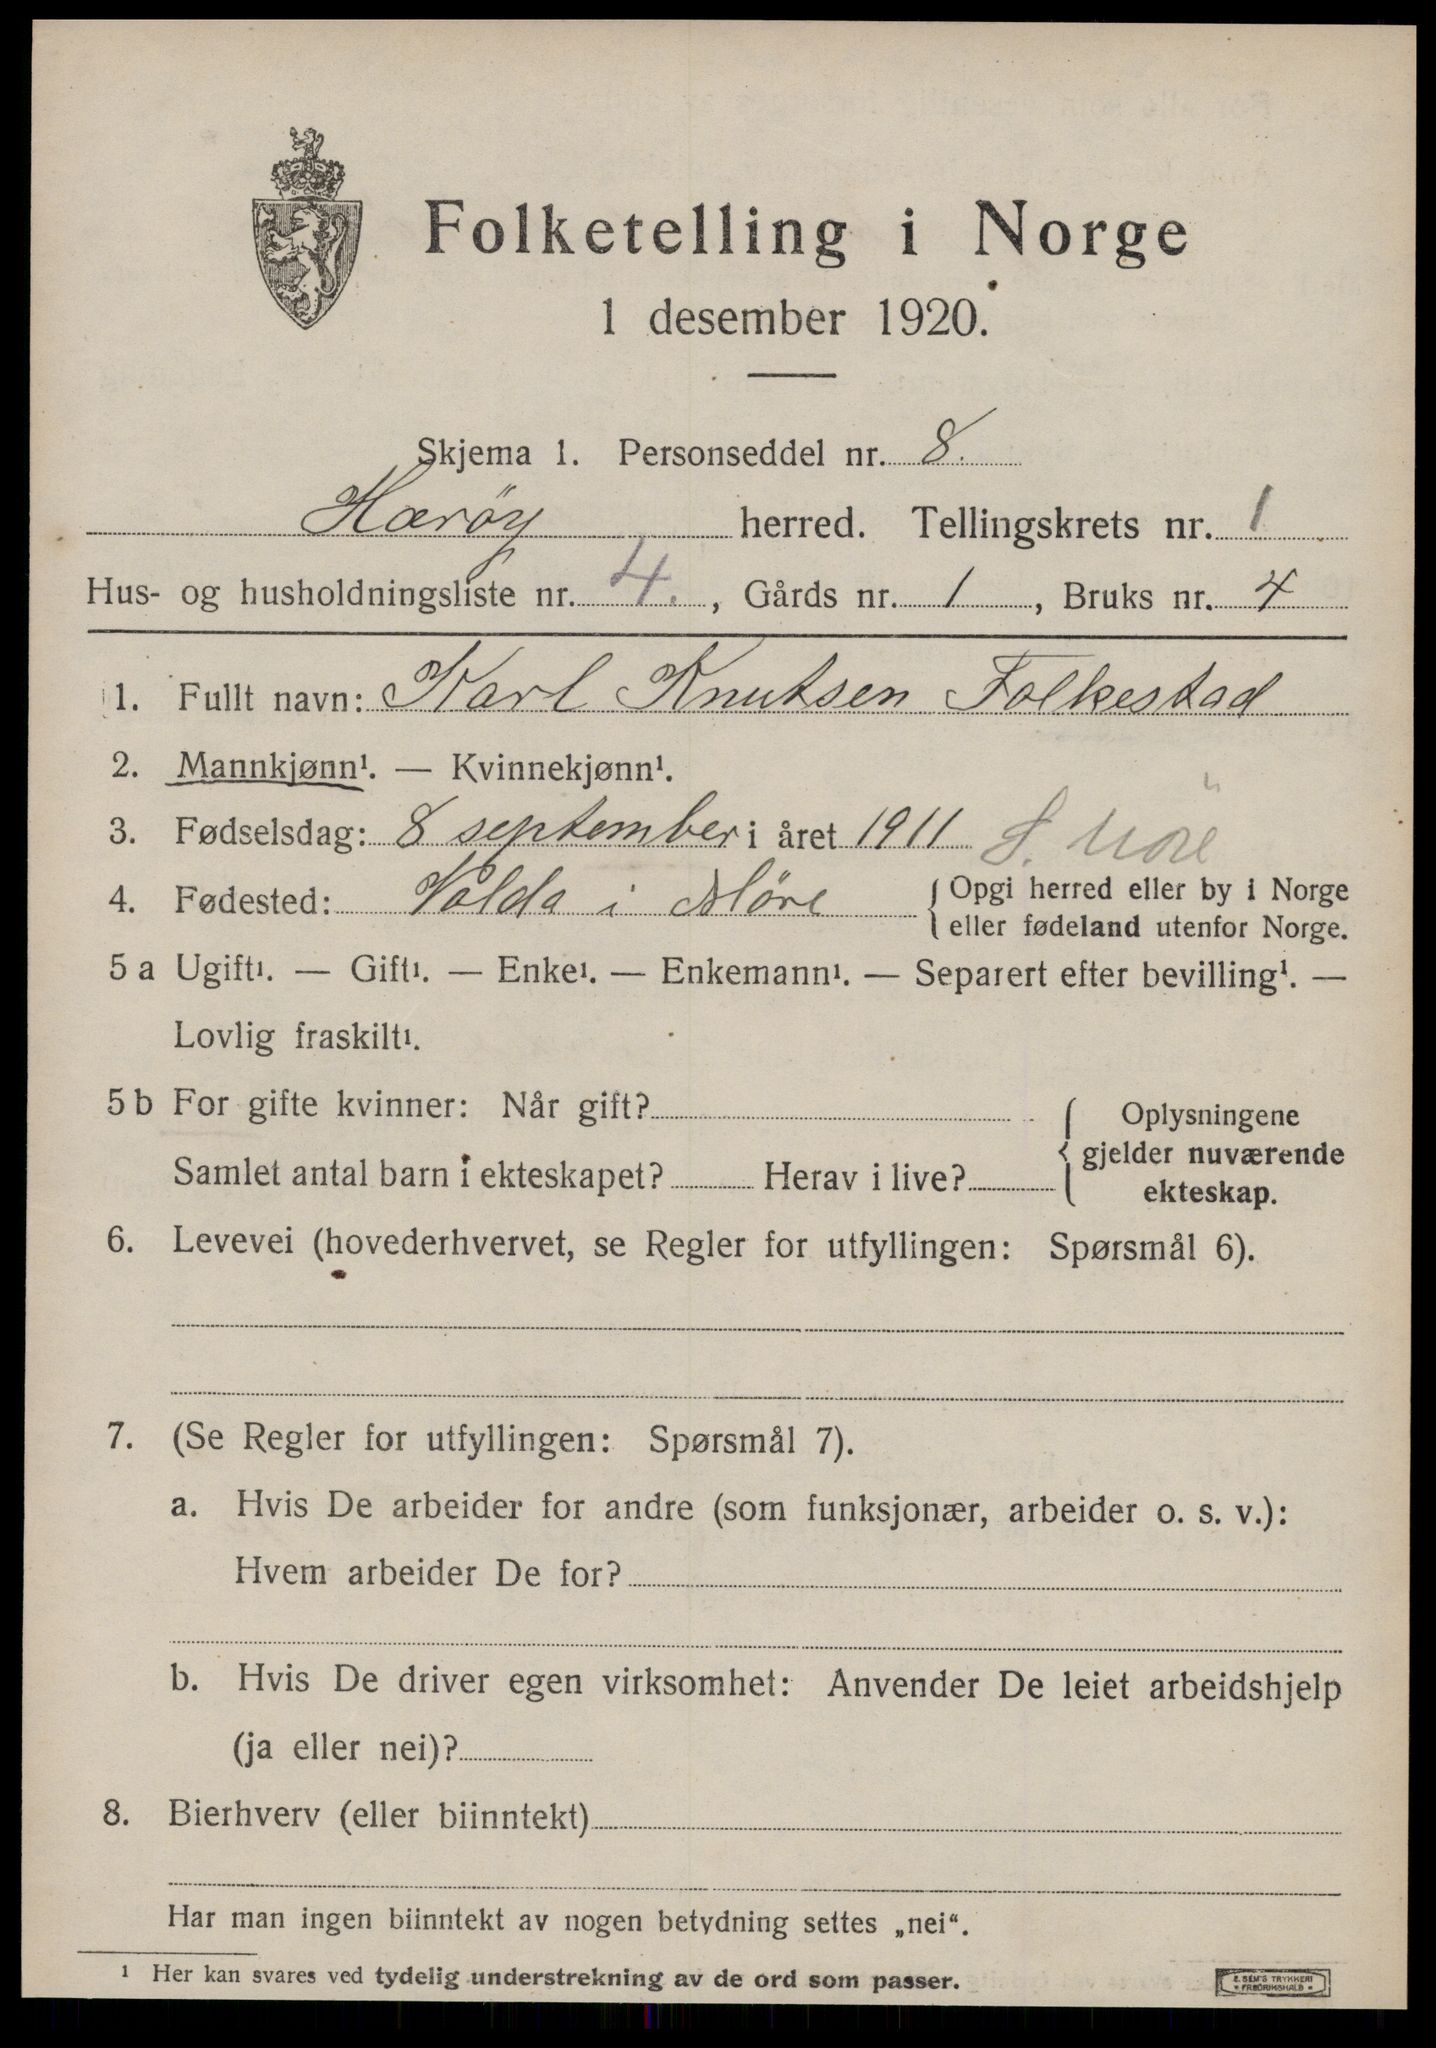 Folketelling i Norge
1 desember 1920.
Skjema 1. Personseddel nr. 8.
Herøy herred. Tellingskrets nr. 1
Hus- og husholdningsliste nr. 4., Gårds nr. 1, Bruks nr. 4
1. Fullt navn: Karl Knutsen Folkestad
2. Mannkjønn¹. — Kvinnekjønn¹.
3. Fødselsdag: 8 september i året 1911 S. Möre
4. Fødested: Volda i Møre { Opgi herred eller by i Norge
eller fødeland utenfor Norge.
5 a Ugift¹. — Gift¹. — Enke¹. — Enkemann¹. — Separert efter bevilling¹. —
Lovlig fraskilt¹.
5 b For gifte kvinner: Når gift? { Oplysningene
gjelder nuværende
Samlet antal barn i ekteskapet? Herav i live? ekteskap.
6. Levevei (hovederhvervet, se Regler for utfyllingen: Spørsmål 6).
7. (Se Regler for utfyllingen: Spørsmål 7).
a. Hvis De arbeider for andre (som funksjonær, arbeider o. s. v.):
Hvem arbeider De for?
b. Hvis De driver egen virksomhet: Anvender De leiet arbeidshjelp
(ja eller nei)?
8. Bierhverv (eller biinntekt)
Har man ingen biinntekt av nogen betydning settes „nei“.
¹ Her kan svares ved tydelig understrekning av de ord som passer.
E. SEM'S TRYKKERI
• FREDRIKSHALD •